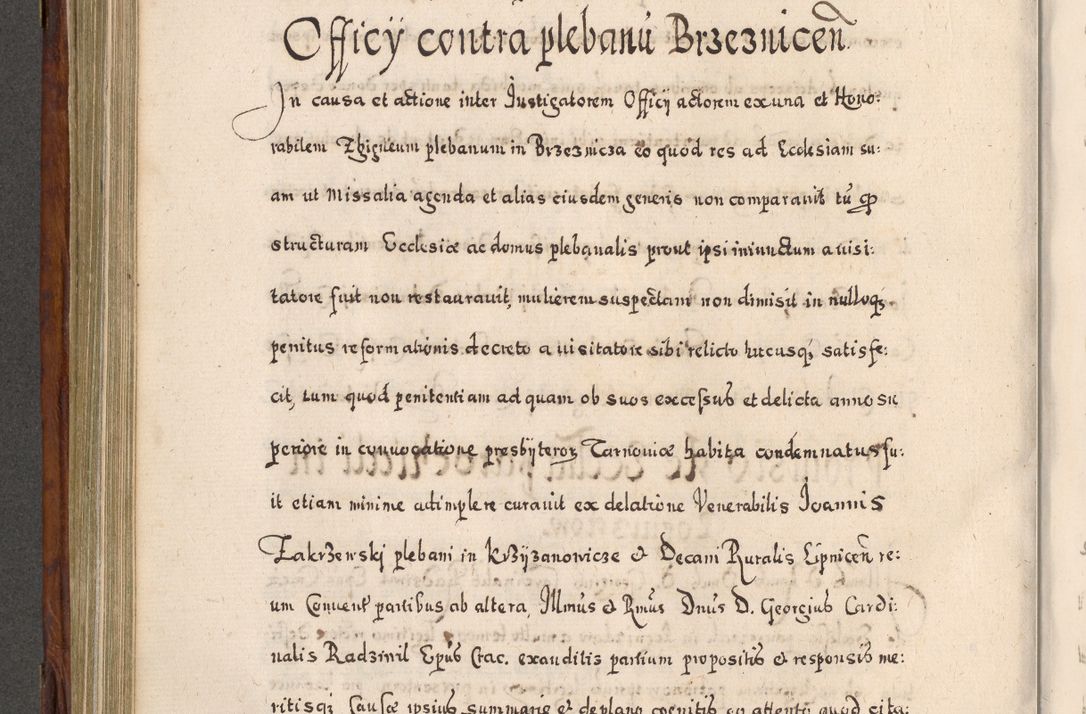 Officÿ contra plebanū Brzeznicen̄
In causa et actione inter Instigatorem Officij actorem ex una et Hono:
rabilem Zbigneum plebanum in Brzeznicza eo quod res ad Ecclesiam su:
am ut Missalia agenda et alias eiusdem generis non comparauit tū
structuram Ecclesiæ ac domus plebanalis prout ipsi iniunctum a uisi:
tatore fuit non restaurauit, mulierem suspectam non dimisit in nulloq;
penitus reformationis decreto a uisitatore sibi relicto hucusq; satisfe:
cit, tum quod penitentiam ad quam ob suos excessus et delicta anno su
periore in conuocatione presbÿteroꝝ Tarnouiæ habita condemnatus fu:
it etiam minime adimplere curauit ex delatione Venerabilis Ioannis
Zakrzewskj plebani in Krzÿzanowicze & Decani Ruralis Lipnicen̄ re:
um Conuent' partibus ab altera, Illmus & Rm̄us Dnus D. Georgius Cardi:
nalis Radziuil Ep̄us Crac. exauditis partium propositis & responsis me:
ritisq; causæ ipsius summarie & de plano cognitis ex attento quod cita: